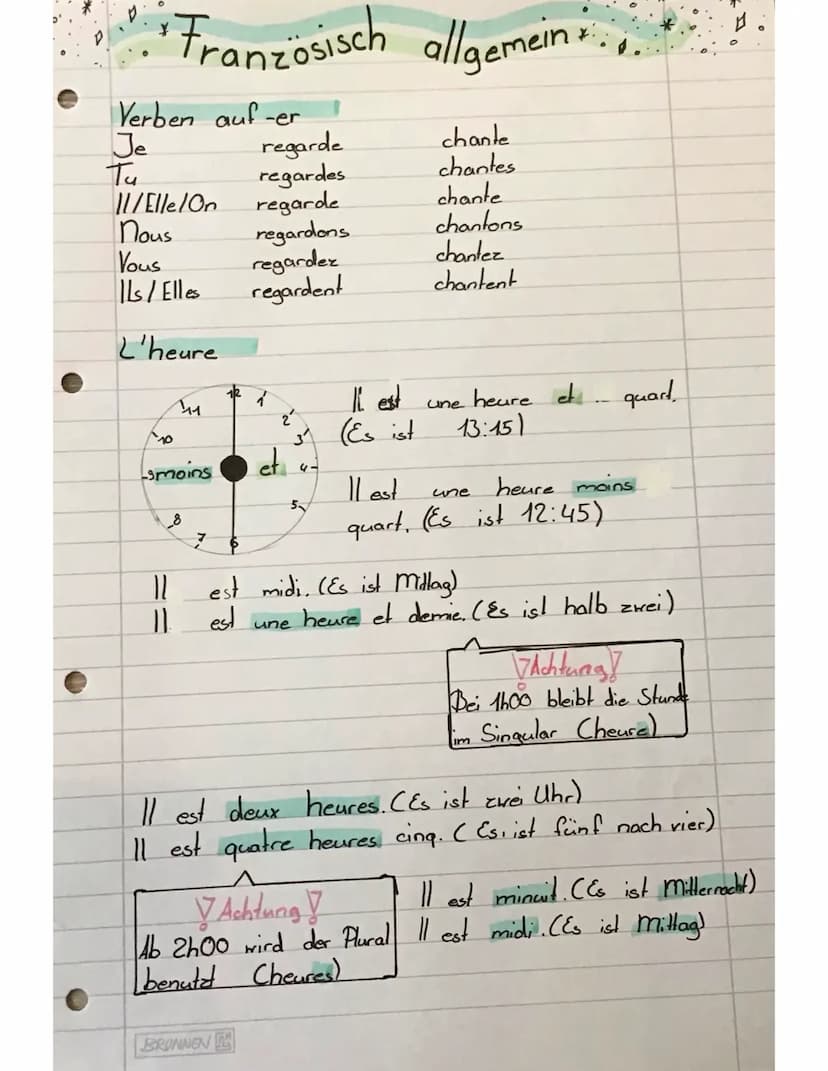 Französisch allgemein
Verben auf -er
Je regarde chante
Tu regardes chantes
Il/Elle/On regarde chante
Nous regardons chantons
Vous regardez chantez
Ils/Elles regardent chantent
L'heure
12
11 1
10 2
3
9 moins et 4
8 5
7 6
Il est une heure et .. quart.
(Es ist 13:15)
Il est une heure moins
quart. (Es ist 12:45)
Il est midi. (Es ist Mittag)
Il est une heure et demie. (Es ist halb zwei)
Achtung!
Bei 1h00 bleibt die Stunde
im Singular (heure)
Il est deux heures. (Es ist zwei Uhr)
Il est quatre heures cinq. (Es ist fünf nach vier)
Achtung!
Ab 2h00 wird der Plural
benutzt (heures)
Il est minuit. (Es ist Mitternacht)
Il est midi. (Es ist Mittag)
BRUNNEN